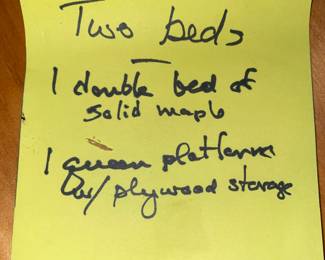 Two beds
1 double bed of
solid maple
1 queen platform
w/ plywood storage